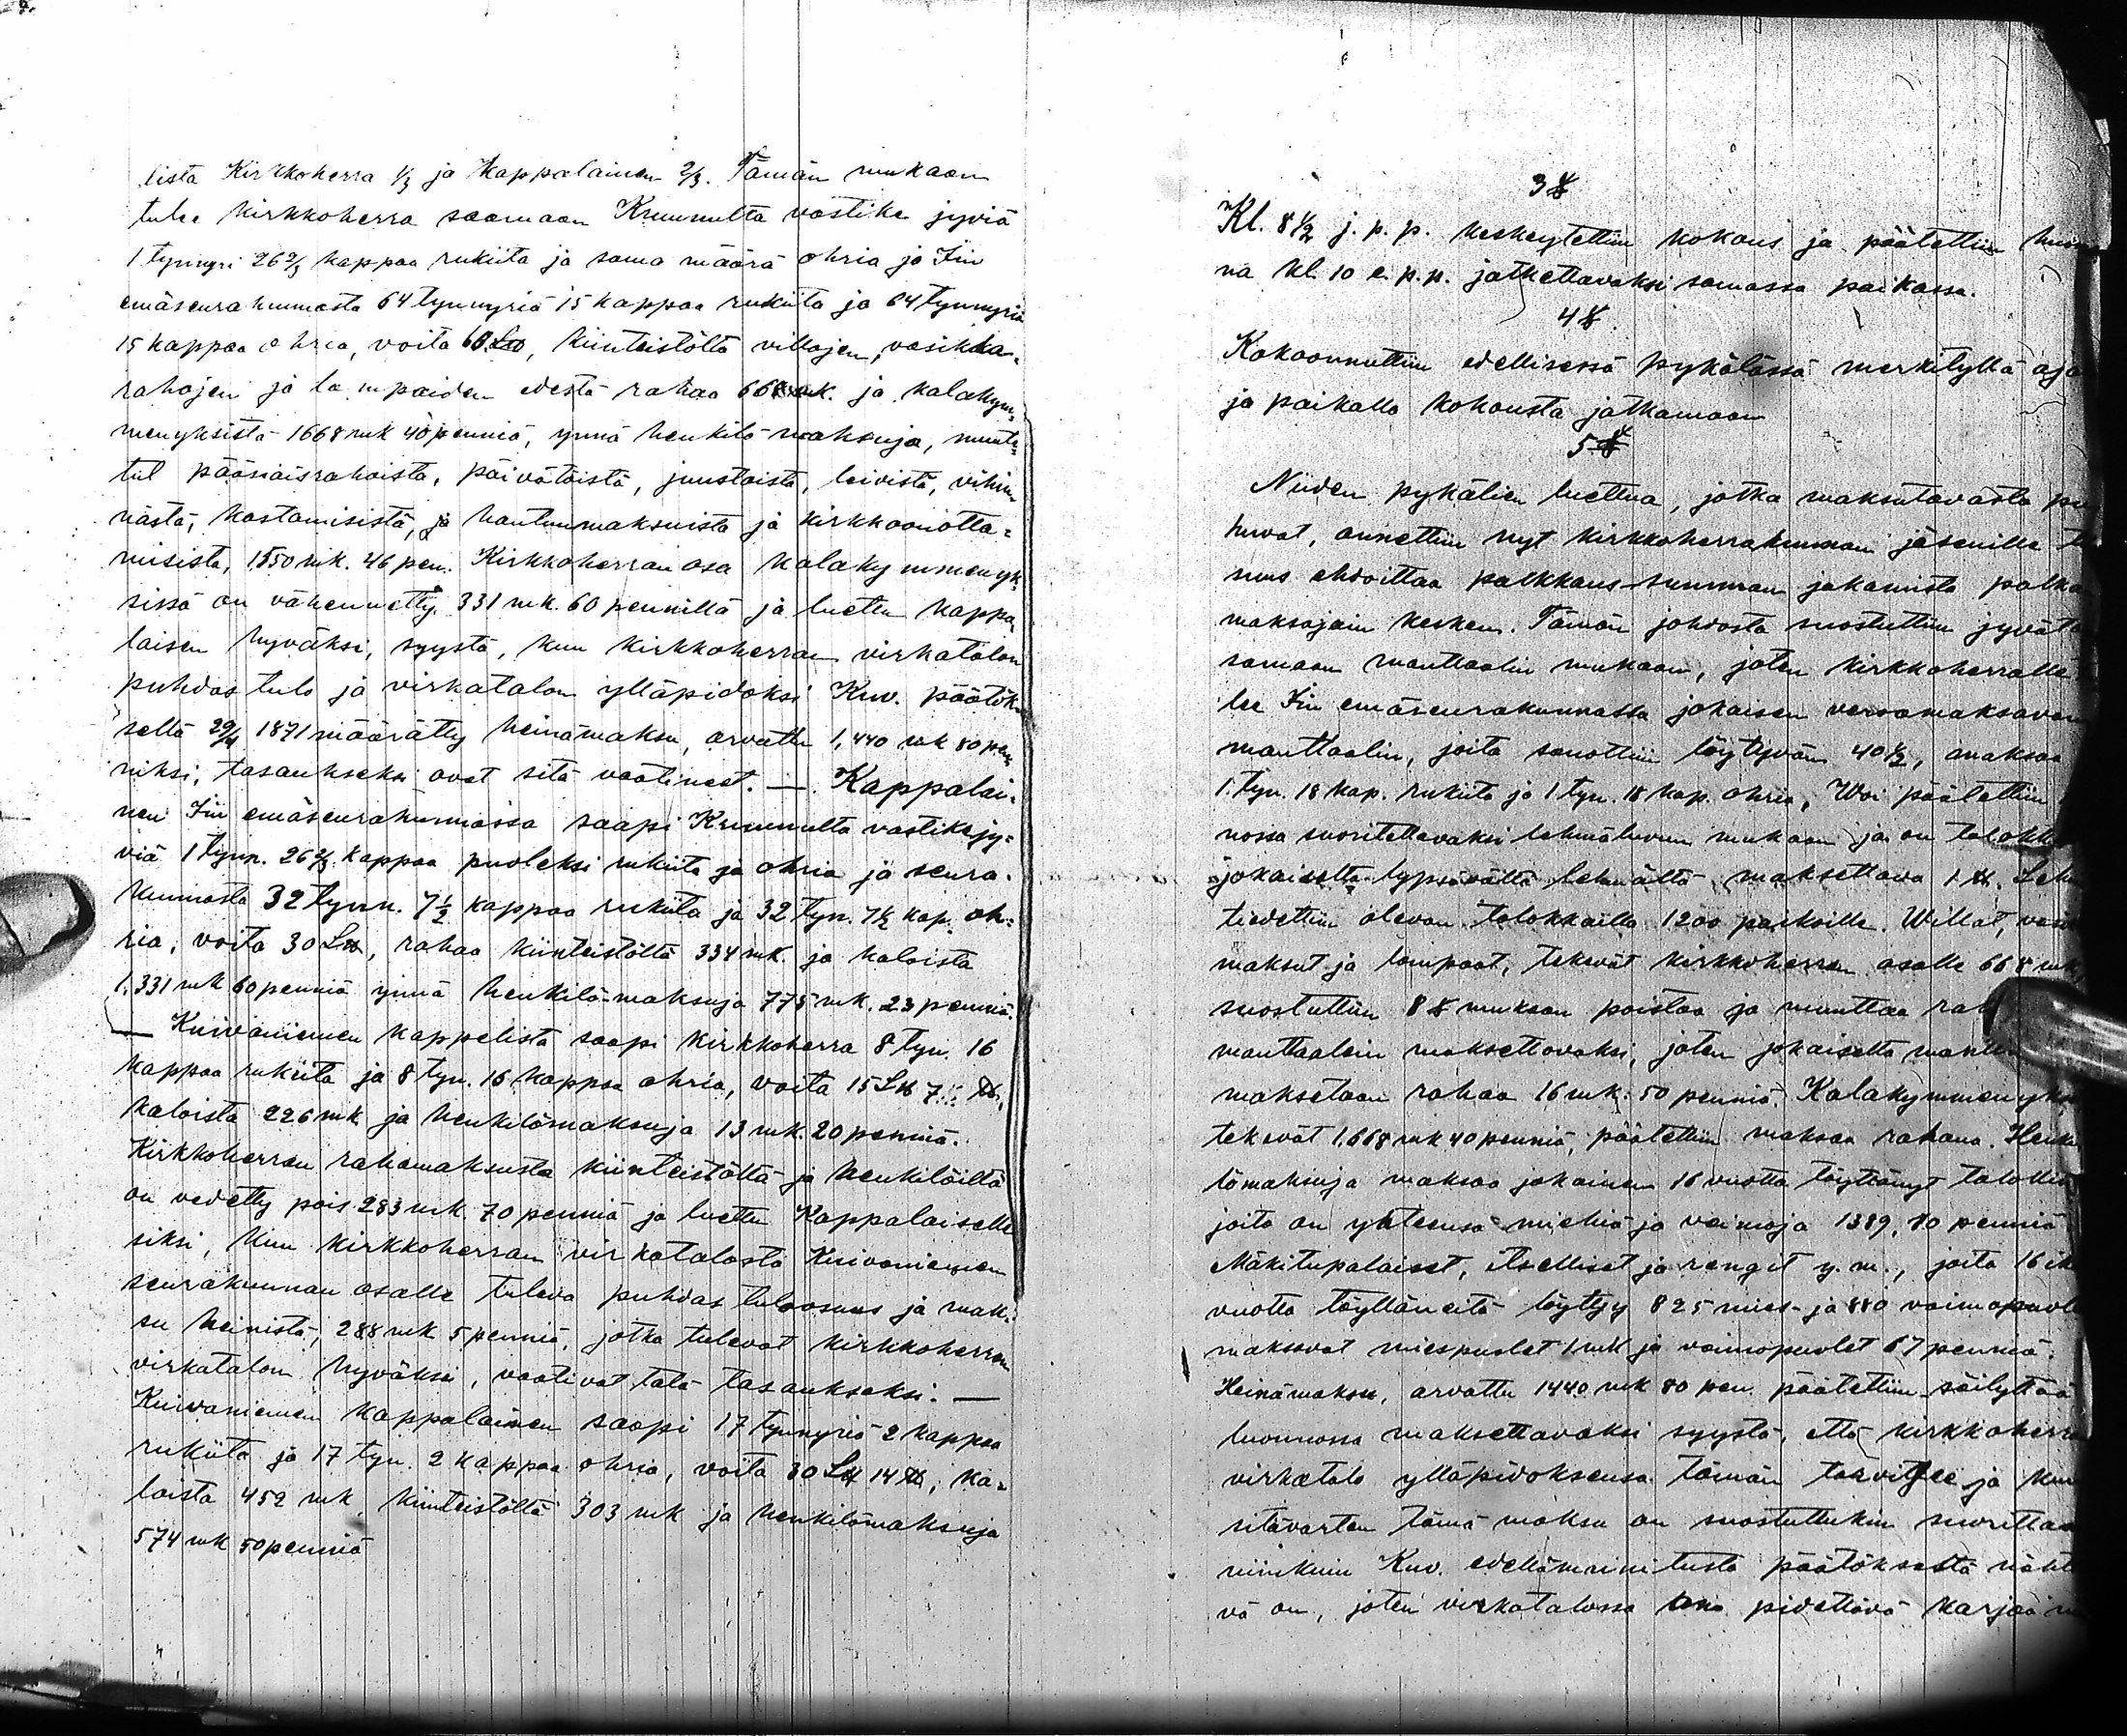 lista Kirkkoherra 1/3 ja Kappalainen 2/3. Tämän mukaan
tulee kirkkoherra saamaan Kruunulta vastike jyviä
1 tynnyri 26 2/3 kappaa rukiita ja sama määrä ohria ja Iin
emäseurakunnasta 64 tynnyriä 15 kappaa rukiita ja 64 tynnyriä
15 kappaa ohria, voita 60 L℔, kiinteistöltä villojen, vasikka-
rahojen ja lampaiden edestä rahaa 668 mk. ja kalakym-
menyksistä 1668 mk 40 penniä, ynnä henkilö maksuja, muute-
tut pääsiäisrahoista, päivätöistä, juustoista, leivistä, vihin-
nästä, kastamisista, ja hautuumaksuista ja kirkkoonotta=
misista, 1550 mk. 46 pen. Kirkkoherran osa kalakymmenyk-
sissä on vähennetty 331 mk. 60 pennillä ja luettu kappa-
laisen hyväksi, syystä, kun kirkkoherran virkatalon
puhdas tulo ja virkatalon ylläpidoksi Kuv. päätök-
sellä 29/4 1871 määrätty heinämaksu, arvattu 1,440 mk 80 pen-
niksi, tasaukseksi ovat sitä vaatineet. — Kappalai-
nen Iin emäseurakunnassa saapi Kruunulta vastikejy=
viä 1 tynn. 26 2/3 kappaa puoleksi rukiita ja ohria ja seura-
kunnasta 32 tynn. 7 1/2 kappaa rukiita ja 32 tyn. 7 1/2 kap. oh=
ria, voita 30 L℔, rahaa kiinteistöltä 334 mk. ja kaloista
1,331 mk 60 penniä ynnä henkilö-maksuja 775 mk. 23 penniä.
— Kuivaniemen kappelista saapi kirkkoherra 8 tyn. 16
kappaa rukiita ja 8 tyn. 16 kappaa ohria, voita 15 L℔ 7 ℔,
kaloista 226 mk ja henkilömaksuja 13 mk. 20 penniä.
Kirkkoherran rahamaksusta kiinteistöltä ja henkilöiltä
on vedetty pois 283 mk. 70 penniä ja luettu Kappalaiselle
siksi, kun kirkkoherran virkatalosta Kuivaniemen
seurakunnan osalle tuleva puhdas tuloosuus ja mak-
su heinistä, 288 mk 5 penniä, jotka tulevat kirkkoherran
virkatalon hyväksi, vaativat tätä tasaukseksi. —
Kuivaniemen kappalainen saapi 17 tynnyriä 2 kappaa
rukiita ja 17 tyn. 2 kappaa ohria, voita 30 L℔ 14 ℔, ka-
loista 452 mk, kiinteistöltä 303 mk ja henkilömaksuja
574 mk 50 penniä
3 §
Kl. 8 1/2 j. p. p. keskeytettiin kokous ja päätettiin
na kl. 10 e. p. p. jatkettavaksi samassa paikassa.
4 §
Kokoonnuttiin edellisessä pykälässä merkityllä aja
ja paikalla kokousta jatkamaan
5 §
Niiden pykälien luettua, jotka maksutavasta pu
huvat, annettiin nyt kirkkoherrakunnan jäsenille
suus ehdoittaa palkkaus-summan jakamista palka
maksajain kesken. Tämän johdosta suostuttiin jyvät
samaan manttaalin mukaan, joten kirkkoherralle
lee Iin emäseurakunnassa jokaisen veroamaksavan
manttaalin, joita sanottiin löytyvän 40 1/2, maksaa
1. tyn. 18 kap. rukiita ja 1 tyn. 18 kap. ohria, Woi päätettiin
nossa suoritettavaksi lehmäluvun mukaan ja on talokk
jokaiselta lypsävältä lehmältä maksettava 1 ℔. Leh
tiedettiin olevan talokkailla 1200 paikoille. Willat, vasi
maksut ja lampaat, tekevät kirkkoherran osalle 668 mk
suostuttiin 8 § mukaan poistaa ja muuttaa rah
manttaalein maksettavaksi, joten jokaiselta mantt
maksetaan rahaa 16 mk. 50 penniä. Kalakymmenyks
tekevät 1,668 mk 40 penniä, päätettiin maksaa rahana. Henk
lömaksuja maksaa jokainen 16 vuotta täyttänyt talollin
joita on yhteensä miehiä ja vaimoja 1389, 80 penniä
Mäkitupalaiset, itselliset ja rengit y. m., joita 16
vuotta täyttäneitä löytyy 825 mies- ja 880 vaimopuol
maksavat miespuolet 1 mk ja vaimopuolet 67 penniä.
Heinämaksu, arvattu 1440 mk 80 pen. päätettiin säilyttää
luonnossa maksettavaksi syystä, että kirkkoherra
virkatalo ylläpidoksensa tämän tarvitsee ja kun
sitävarten tämä maksu on suostuttukin suoritta
niinkuin Kuv. edellämainitusta päätöksestä näht
vä on, joten virkatalossa pidettävä karjaa